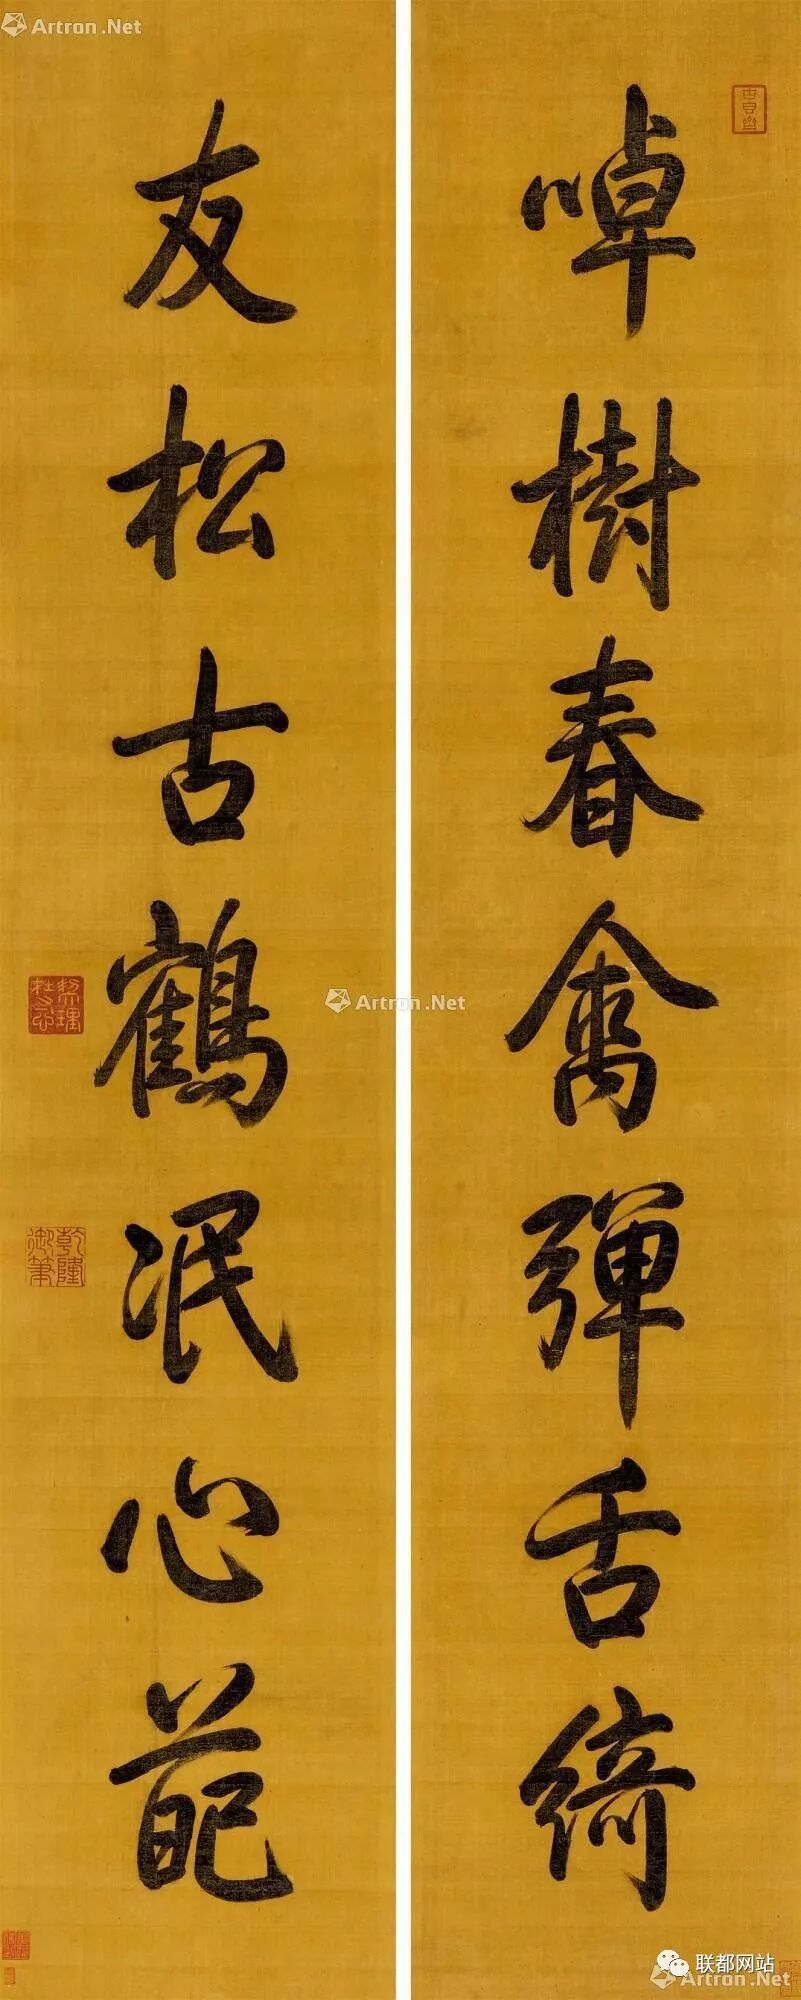 啅樹春禽彈舌綺
友松古鶴泯心葩
乾隆御筆
Artron.Net
Artron.Net
联都网站
Artron.Net